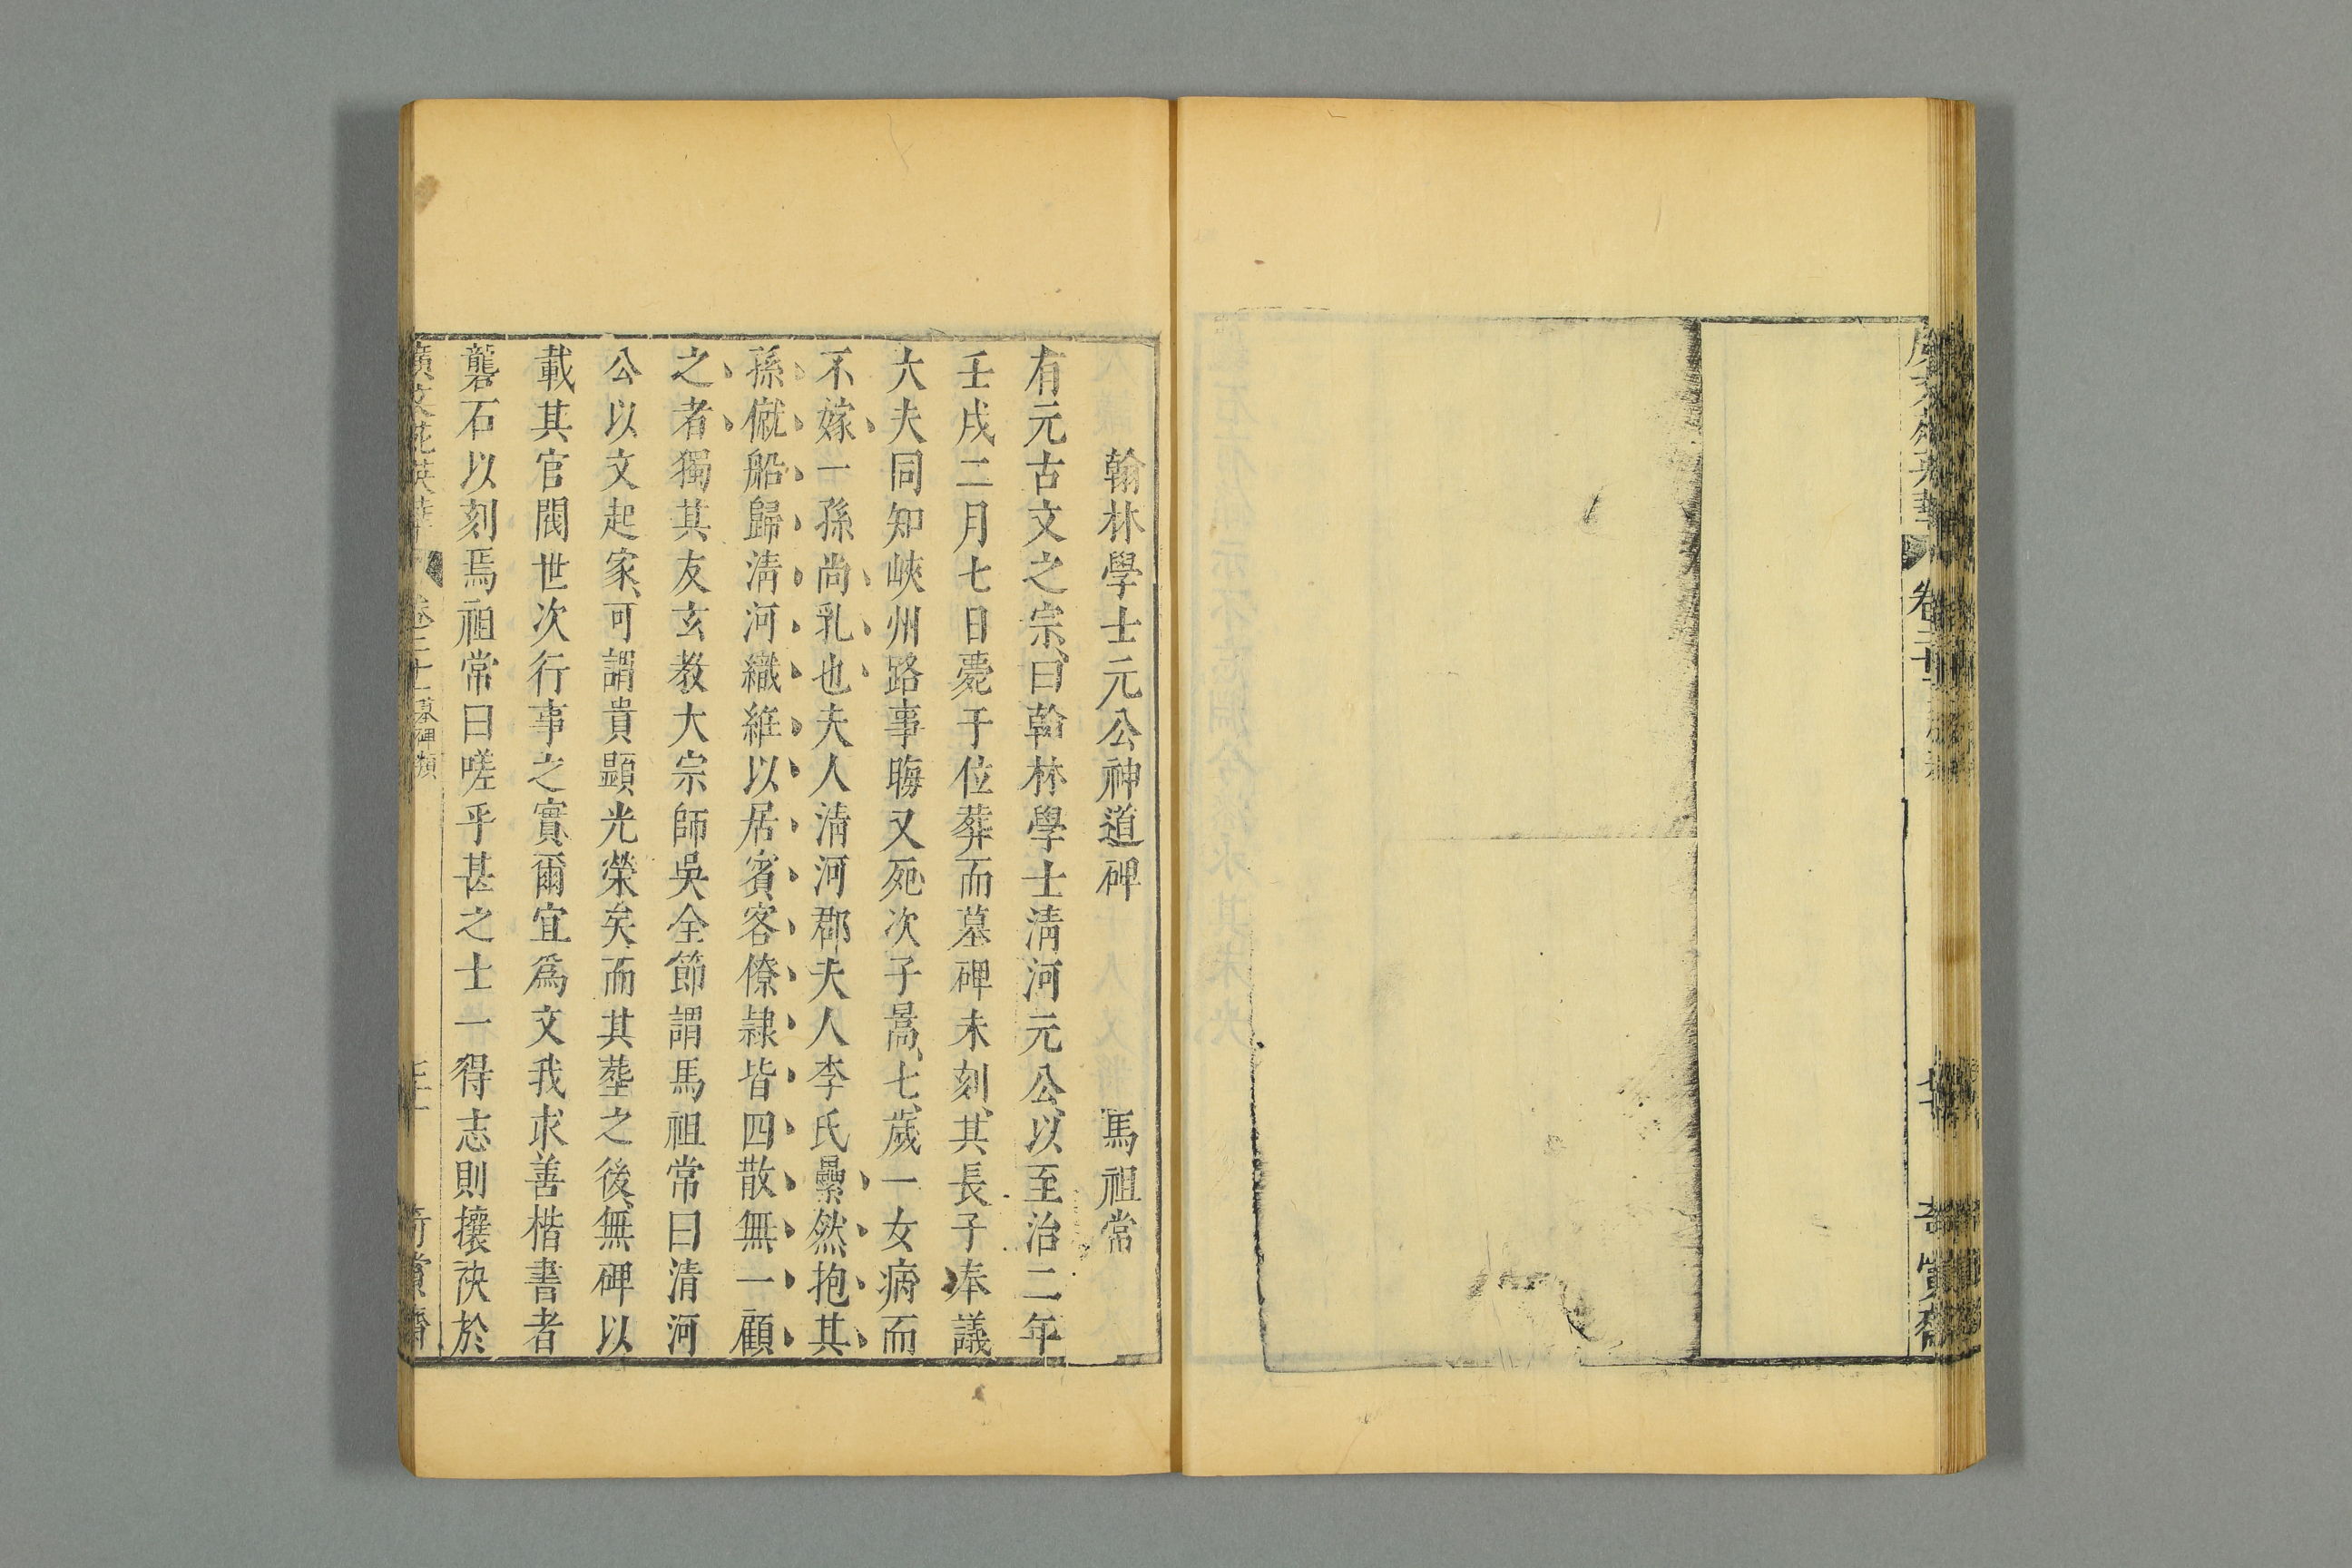 翰林學士元公神道碑　馬祖常
有元古文之宗曰翰林學士淸河元公以至治二年
壬戌二月七日薨于位葬而墓碑未刻其長子奉議
大夫同知峽州路事晦又死次子暠七歲一女病而
不嫁一孫尚乳也夫人淸河郡夫人李氏纍然抱其
孫僦船歸淸河織絍以居賓客僚隷皆四散無一顧
之者獨其友玄教大宗師吳全節謂馬祖常曰淸河
公以文起家可謂貴顯光榮矣而其塟之後無碑以
載其官閥世次行事之實爾宜爲文我求善楷書者
礱石以刻焉祖常曰嗟乎甚之士一得志則攘袂於
廣文苑英華　卷二十　墓碑類